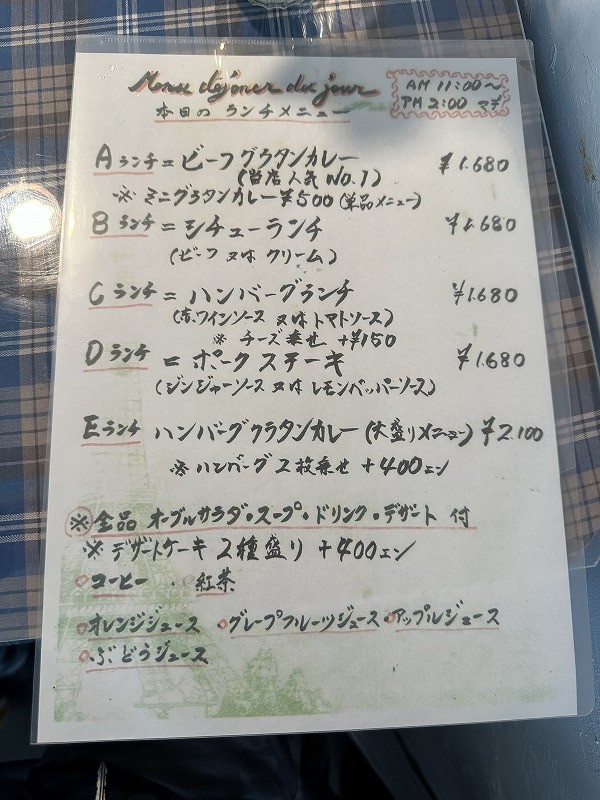 Menu dejoner du jour
本日の ランチメニュー
AM 11:00～
PM 2:00 マデ
Aランチ = ビーフグラタンカレー ¥1.680
(当店人気 No.1)
※ ミニグラタンカレー¥500(単品メニュー)
Bランチ = シチューランチ ¥1.680
(ビーフ 又は クリーム)
Cランチ = ハンバーグランチ ¥1.680
(赤ワインソース 又は トマトソース)
※ チーズ乗せ +¥150
Dランチ = ポークステーキ ¥1.680
(ジンジャーソース 又は レモンペッパーソース)
Eランチ ハンバーググラタンカレー (大盛りメニュー) ¥2.100
※ ハンバーグ2枚乗せ +400エン
※全品 オーブルサラダ・スープ・ドリンク・デザート 付
※ デザートケーキ 2種盛り +400エン
○コーヒー ・ ○紅茶
○オレンジジュース ○グレープフルーツジュース ○アップルジュース
○ぶどうジュース